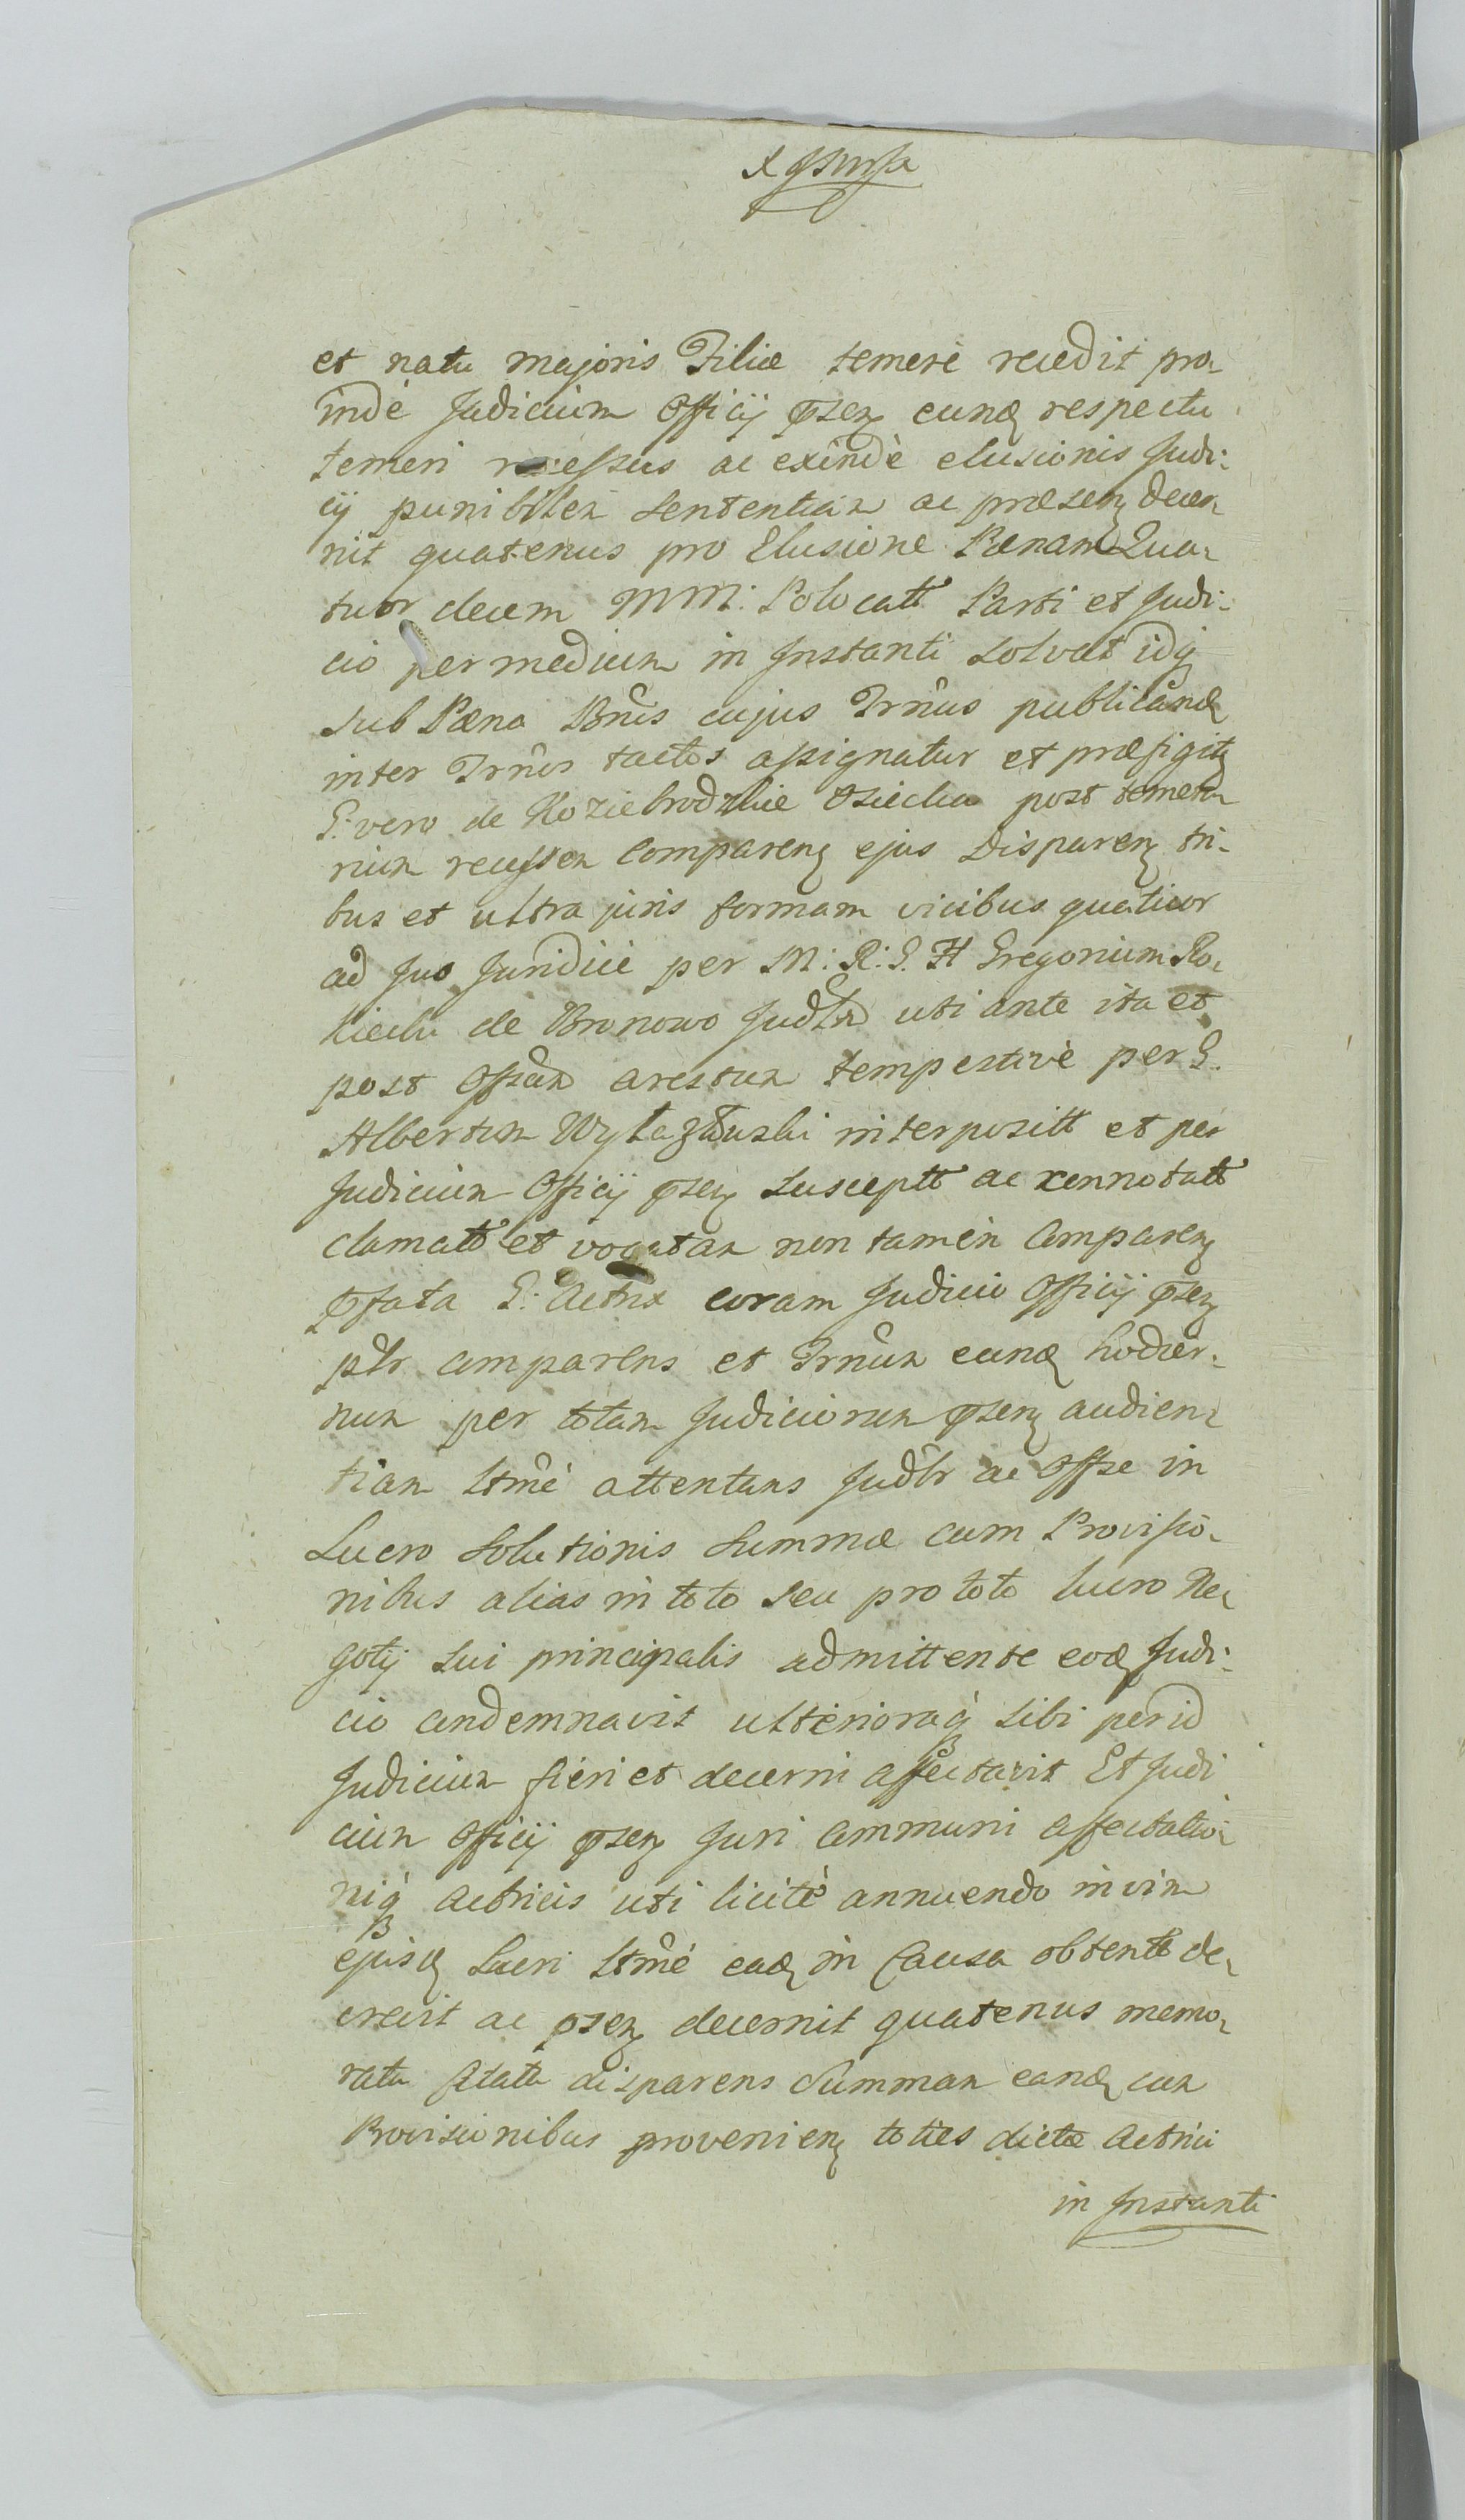 et natu majoris Filiæ temerè recedit pro-
indè Judicium Officij psen eund respectu
temeri recessus ac exindè elusionis Judi-
cij punibilem sententiam ac præsen decer-
nit quatenus pro Elusione Pœnam Qua-
tuor decem MM: Polocatt Parti et Judi-
cio per medium in Instanti solvat idq
sub Pæna Bnis cujus Trnus publicand
inter Trnos tactos assignatur et præfigitt
G: vero de Koziebrodzkie Osiecka post temera-
rium recessum comparen ejus Disparen tri-
bus et ultra juris formam vicibus quatuor
ad Jus Juridicè per M: R: G. H Gregorium Ro-
kicki de Bronowo Judlm uti ante ita et
post Offsum arestum tempestivè per G.
Albertum Wyłazłowski interpositt et per
Judicium Officij psen susceptt ac connotatt
clamatt et vocatam non tamen comparen
pfata G: Actrix coram Judicio Officij psen
plr comparens et Trnum eund hodier-
num per totam Judiciorum psen audien-
tiam ltmè attentans Judlr ac Offse in
Lucro solutionis summæ cum Provisio-
nibus alias in toto seu pro toto lucro Ne-
gotij sui principalis admittente eod Judi-
cio condemnavit ulterioraq sibi per id
Judicium fieri et decerni affectavit Et Judi
cium Officij psen Juri communi affectatio-
niq Actricis uti licitè annuendo in vim
ejusd Lucri ltmè ead in Causa obtentt de-
crevit ac psen decernit quatenus memo-
rata Citata disparens Summam eand cum
Provisionibus provenien toties dictæ Actrici
in Instanti